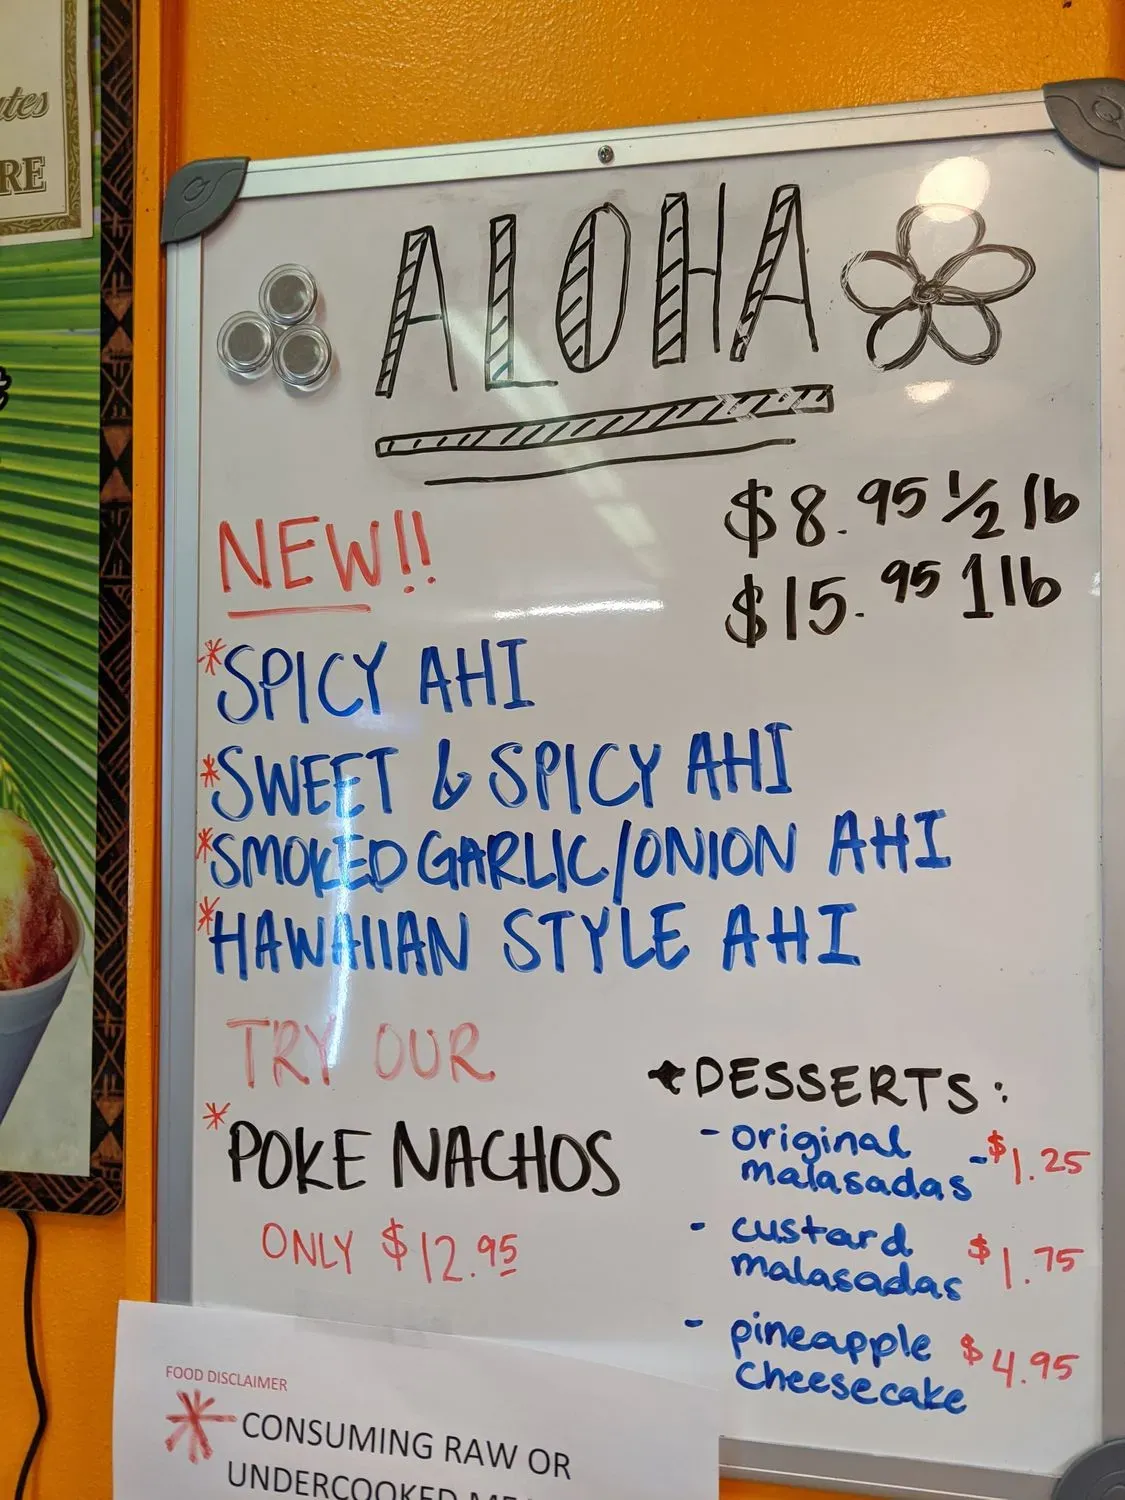 RE
ALOHA
$8.95 1/2 lb
$15.95 1 lb
NEW!!
*SPICY AHI
*SWEET & SPICY AHI
*SMOKED GARLIC/ONION AHI
*HAWAIIAN STYLE AHI
TRY OUR
*POKE NACHOS
ONLY $12.95
DESSERTS:
- original
malasadas - $1.25
- custard
malasadas $1.75
- pineapple
cheesecake $4.95
FOOD DISCLAIMER
* CONSUMING RAW OR
UNDERCOOKED